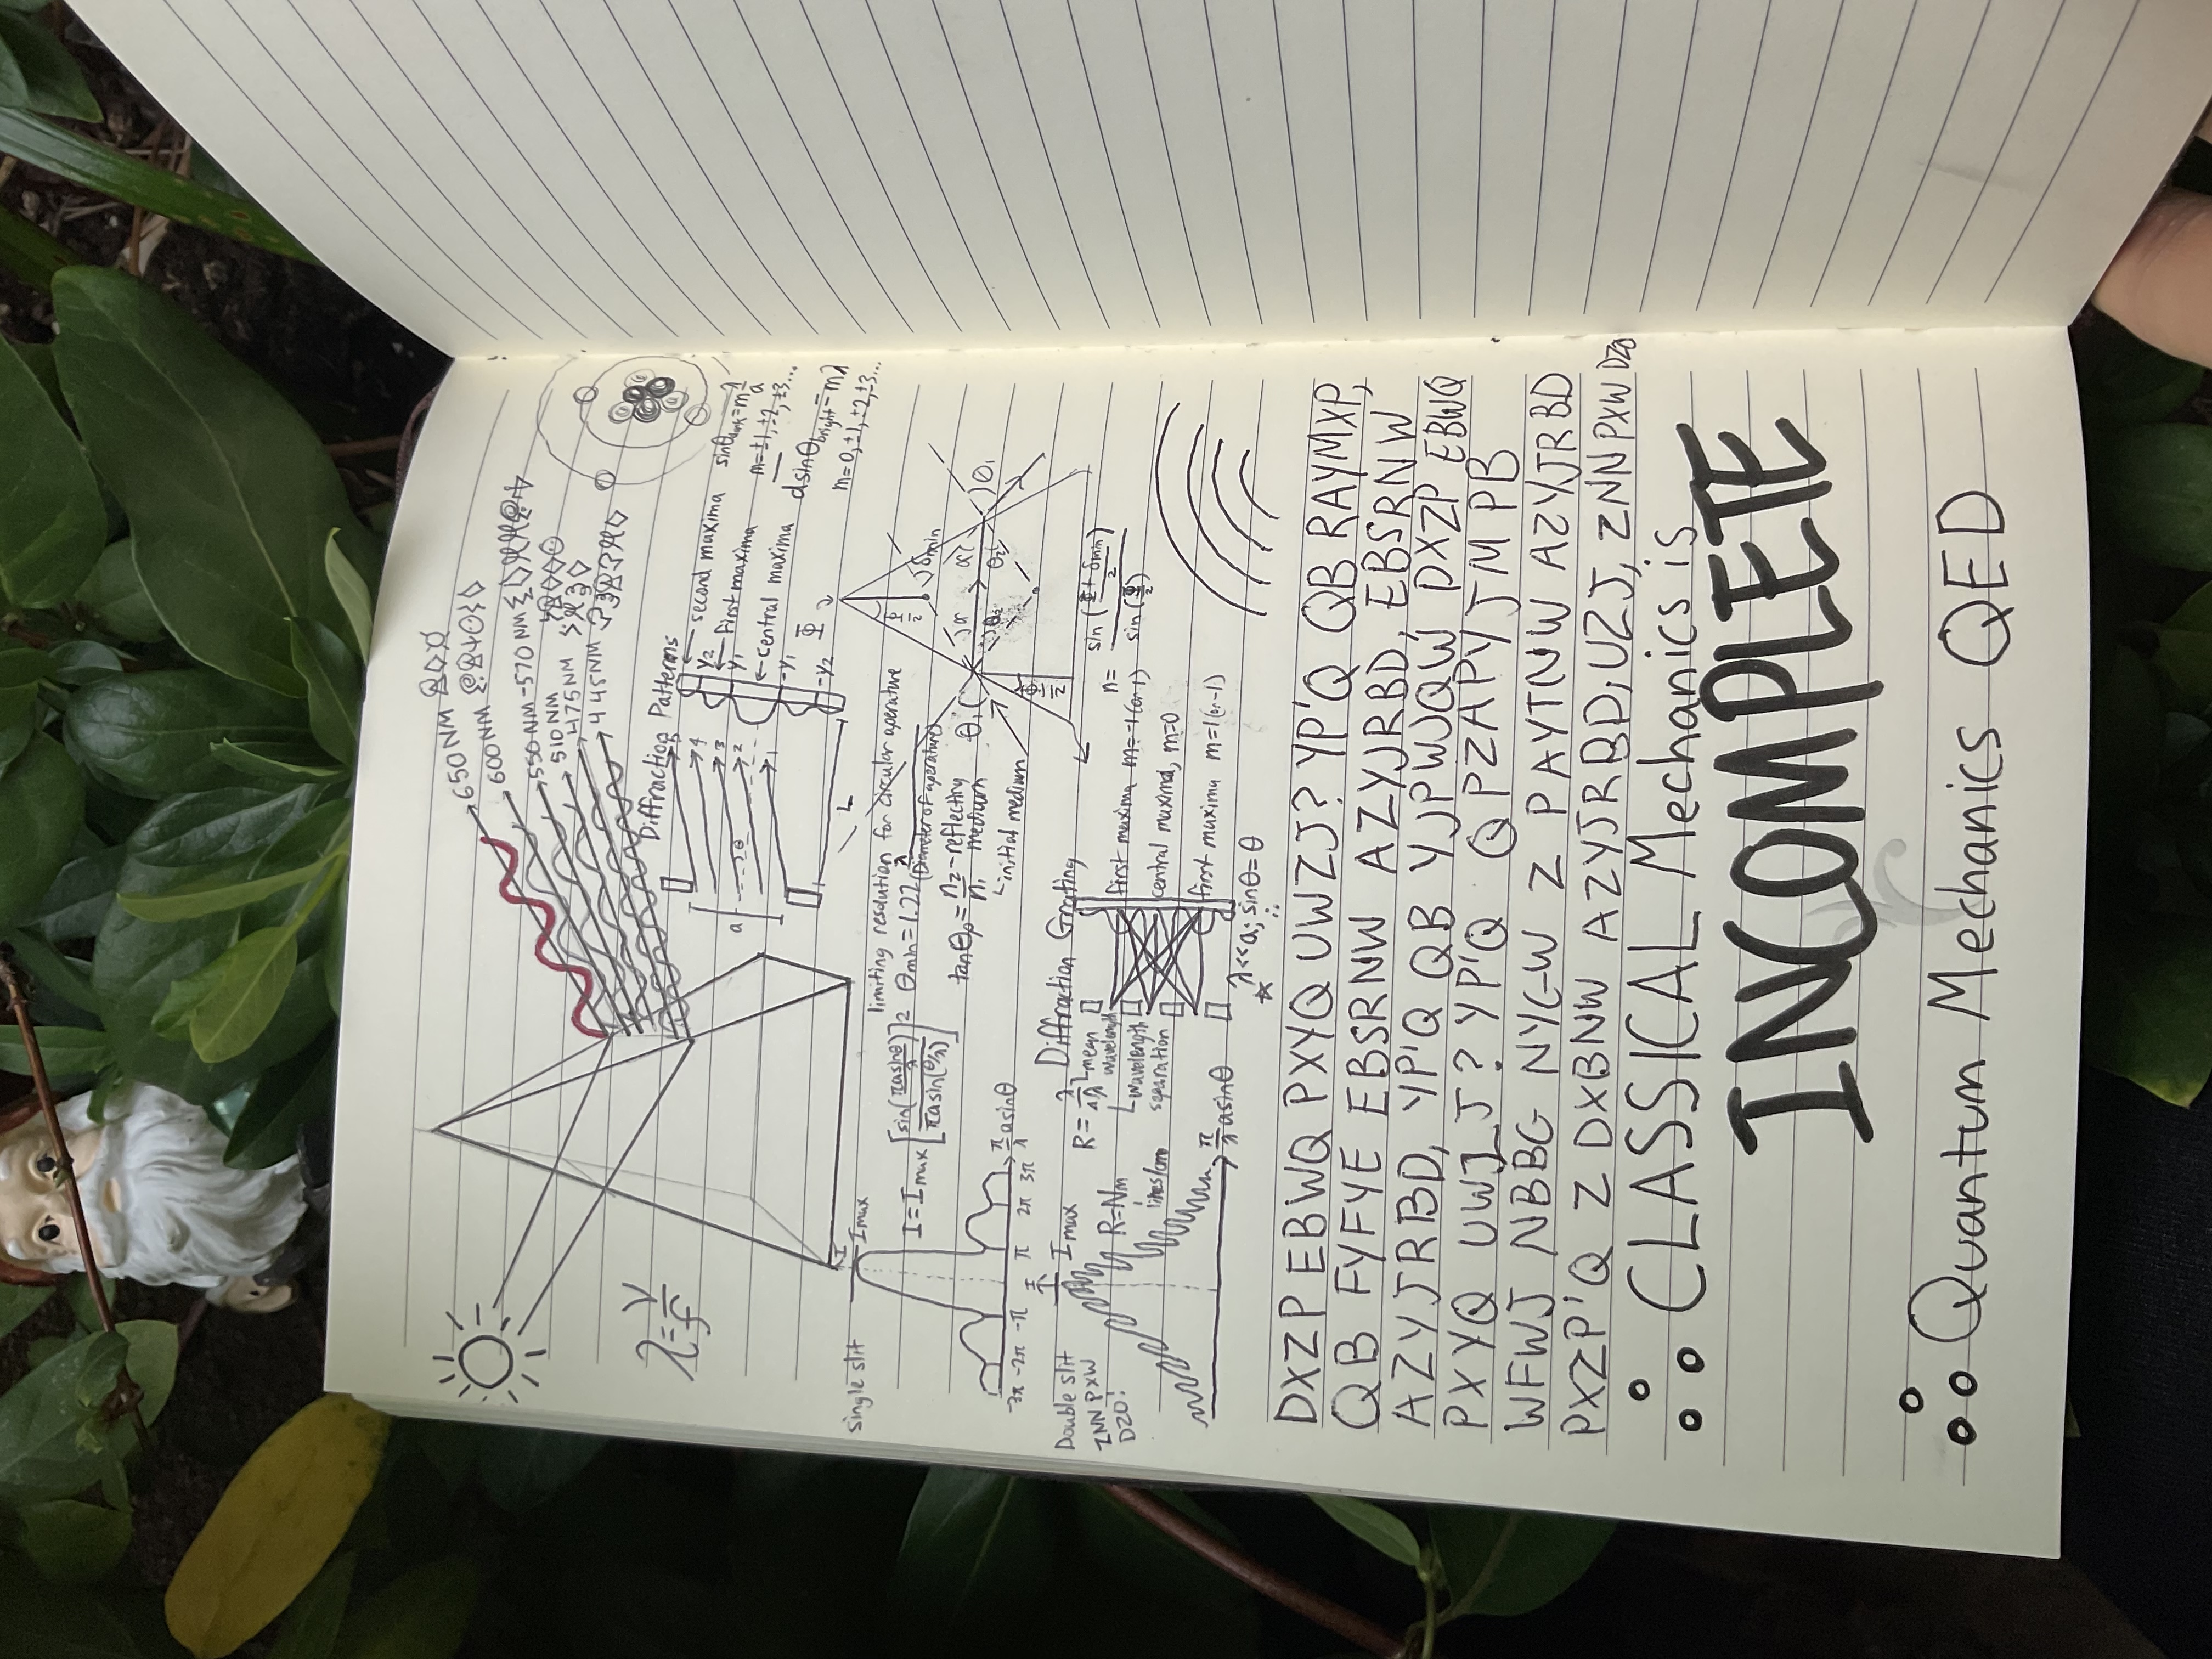 650 NM
600 NM
550 NM-570 NM
510 NM
475 NM
445 NM
λ=v/f
Diffraction Patterns
5
4
3
2
1
a
θ
L
y2
y1
-y1
-y2
second maxima
first maxima
central maxima
sinθdark=mλ/a
m=±1,±2,±3...
dsinθbright=mλ
m=0,±1,±2,±3...
single slit
I
Imax
I=Imax[sin(πasinθ/λ)/πasin(θ/λ)]2
-3π -2π -π π 2π 3π
π/λ asinθ
limiting resolution for circular aperature
θmin=1.22 λ/(Diameter of aperature)
tanθp=n2/n1
-reflecting medium
initial medium
Φ
Φ/2
δmin
θ1
α
α
θ2
θ2
θ1
Φ/2
n=sin(Φ+δmin/2)/sin(Φ/2)
Double slit
ZNN PXW
DZO!
I
Imax
R=Nm
lines/cm
π/λ asinθ
Diffraction Grating
R=λ/Δλ
mean wavelength
wavelength separation
first maxima m=-1(or 1)
central maxima, m=0
first maxima m=1(or-1)
λ<<a; sinθ=θ
DXZP EBWQ PXYQ UWZJ? YP'Q QB RAYMXP,
QB FYFYE EBSRNW AZYJRBD, EBSRNW
AZYJRBD, YP'Q QB YJPWJQW DXZP EBWQ
PXYQ UWZJ? YP'Q Q PZAPYJM PB
WFWJ NBBG NYGW Z PAYTNW AZYJRBD
PXZP'Q Z DXBNW AZYJRBD; UZJ, ZNN PXW DZO
∴ CLASSICAL Mechanics is
INCOMPLETE
∴ Quantum Mechanics QED